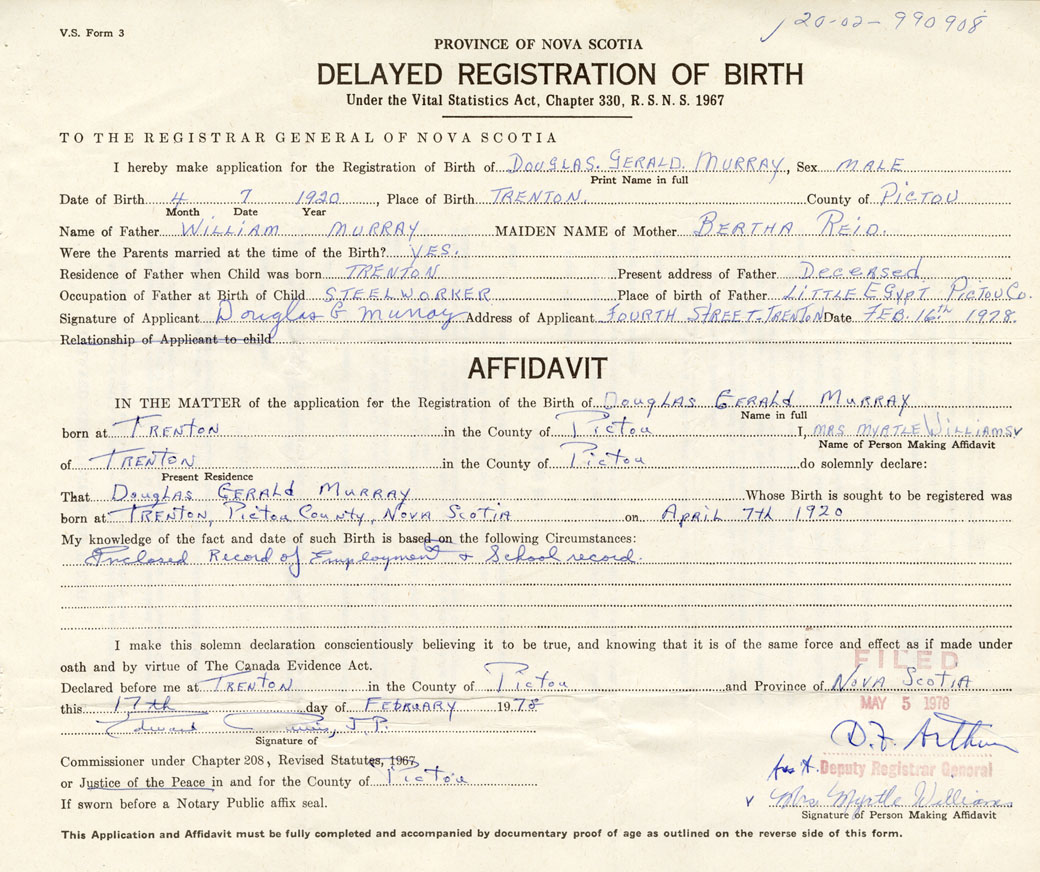 20-02-990908
V.S. Form 3
PROVINCE OF NOVA SCOTIA
DELAYED REGISTRATION OF BIRTH
Under the Vital Statistics Act, Chapter 330, R. S. N. S. 1967
TO THE REGISTRAR GENERAL OF NOVA SCOTIA
I hereby make application for the Registration of Birth of DOUGLAS. GERALD. MURRAY, Sex MALE
Print Name in full
Date of Birth 4 7 1920, Place of Birth TRENTON. County of PICTOU
Month Date Year
Name of Father WILLIAM MURRAY MAIDEN NAME of Mother BERTHA REID.
Were the Parents married at the time of the Birth? YES.
Residence of Father when Child was born TRENTON Present address of Father Deceased
Occupation of Father at Birth of Child STEELWORKER Place of birth of Father LITTLE EGYPT PICTOU Co.
Signature of Applicant Douglas G Murray Address of Applicant FOURTH STREET-TRENTON Date FEB. 16th 1978.
Relationship of Applicant to child
AFFIDAVIT
IN THE MATTER of the application for the Registration of the Birth of Douglas GERALD MURRAY
Name in full
born at TRENTON in the County of Pictou I, MRS MYRTLE WILLIAMS
Name of Person Making Affidavit
of TRENTON in the County of Pictou do solemnly declare:
Present Residence
That Douglas GERALD MURRAY Whose Birth is sought to be registered was
born at TRENTON, PICTOU COUNTY, NOVA SCOTIA on APRIL 7th 1920
My knowledge of the fact and date of such Birth is based on the following Circumstances:
Enclosed Record of Employment & School record.
I make this solemn declaration conscientiously believing it to be true, and knowing that it is of the same force and effect as if made under
oath and by virtue of The Canada Evidence Act.
FILED
Declared before me at TRENTON in the County of Pictou and Province of NOVA SCOTIA
this 17th day of FEBRUARY 1978
MAY 5 1978
Edward J.P.
Signature of
D.F. Arthur
Commissioner under Chapter 208, Revised Statutes, 1967
Deputy Registrar General
or Justice of the Peace in and for the County of Pictou
If sworn before a Notary Public affix seal.
Mrs Myrtle Williams
Signature of Person Making Affidavit
This Application and Affidavit must be fully completed and accompanied by documentary proof of age as outlined on the reverse side of this form.